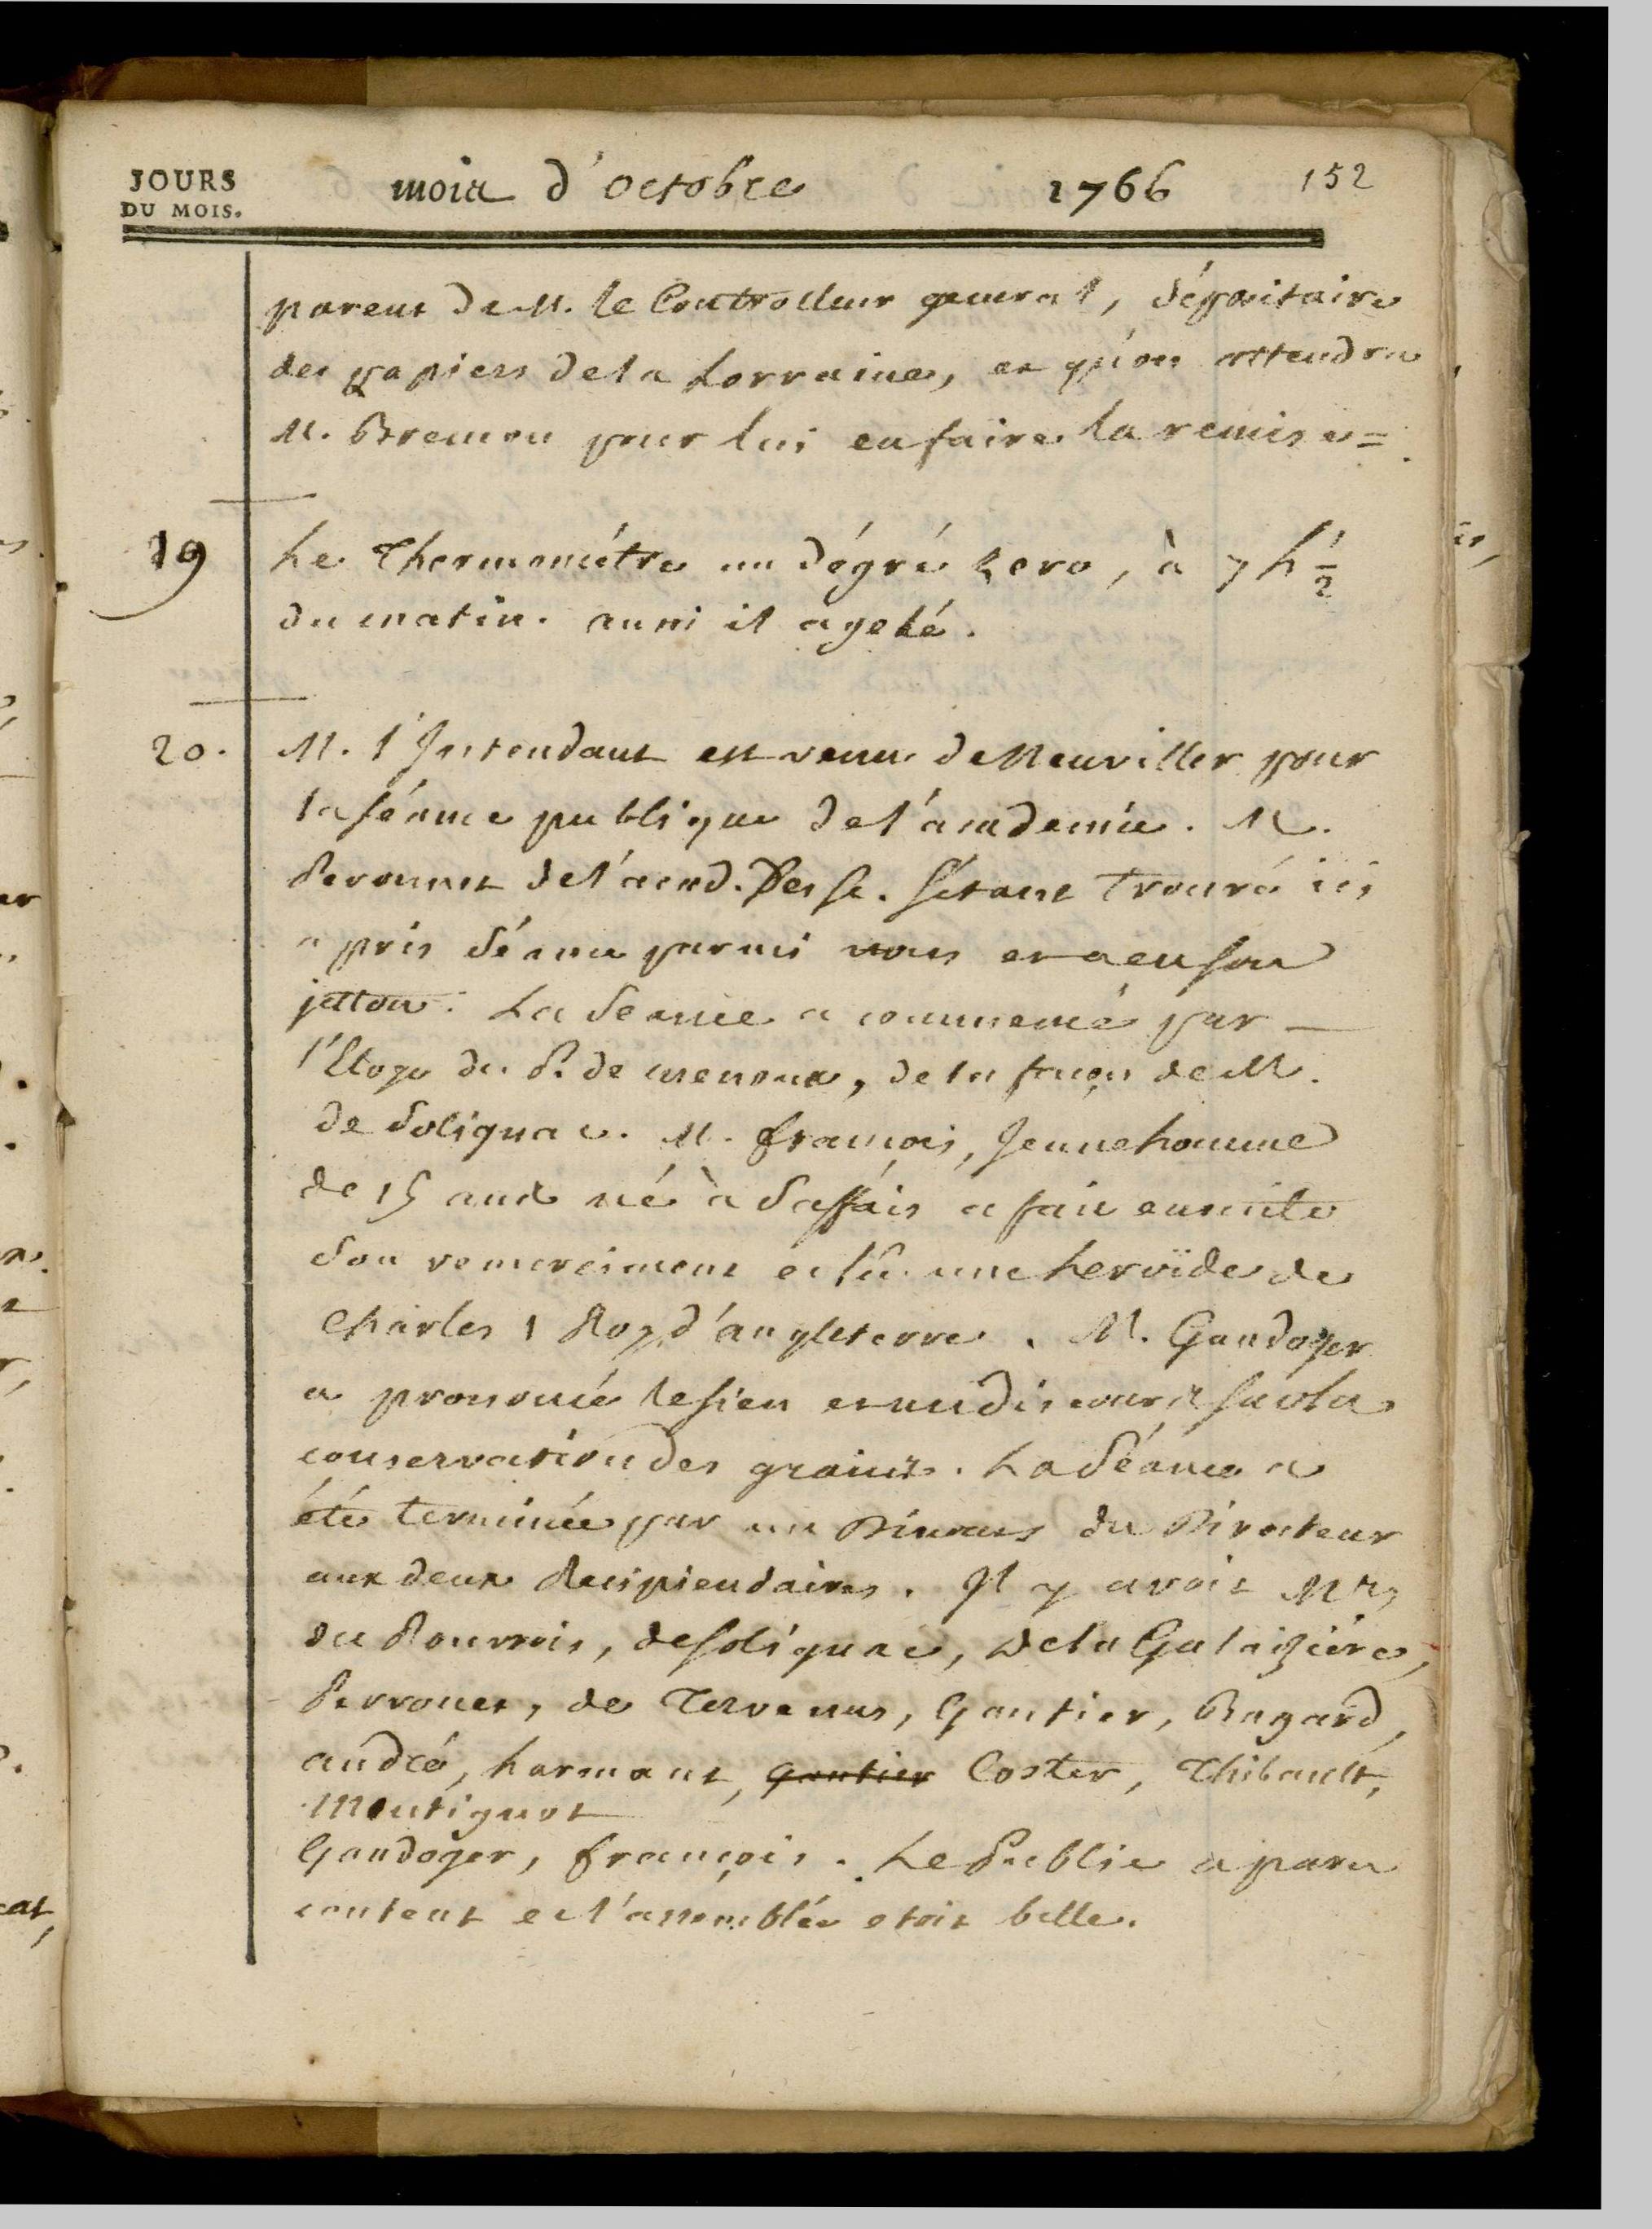 JOURS
DU MOIS.
mois d'octobre 1766 152
parent de M. le Controlleur general, dépositaire
des papiers de la Lorraine, et qu'on attendra
M. Bremon pour lui en faire la remise =
19 Le Thermométre au dégré zero, à 7 h 1/2
du matin. aussi il a gelé.
20. M. l'Intendant est venu de Neuviller pour
la séance publique de l'academie. M.
Peronnet de l'acad. des sc. s'étant trouvé ici
a pris séance parmi nous et a eu son
jetton. La Seance a commencé par
l'Eloge du P. de menoux, de la façon de M.
de Solignac. M. françois, Jeune homme
de 15 ans né à Saffais a fait ensuite
son remerciment et lu une heroïde de
Charles 1 Roy d'angleterre. M. Gandoger
a prononcé le sien et un discours sur la
conservation des grains. La Séance a
été terminée par un Discours du Directeur
aux deux Recipiendaires. Il y avoit Mrs
du Rouvrois, de solignac, de la Galaizière,
Perronet, de Tervenus, Gautier, Bagard,
andré, harmant, gautier Coster, Thibault,
Montignot
Gandoger, françois. Le Public a paru
content et l'assemblée etoit belle.